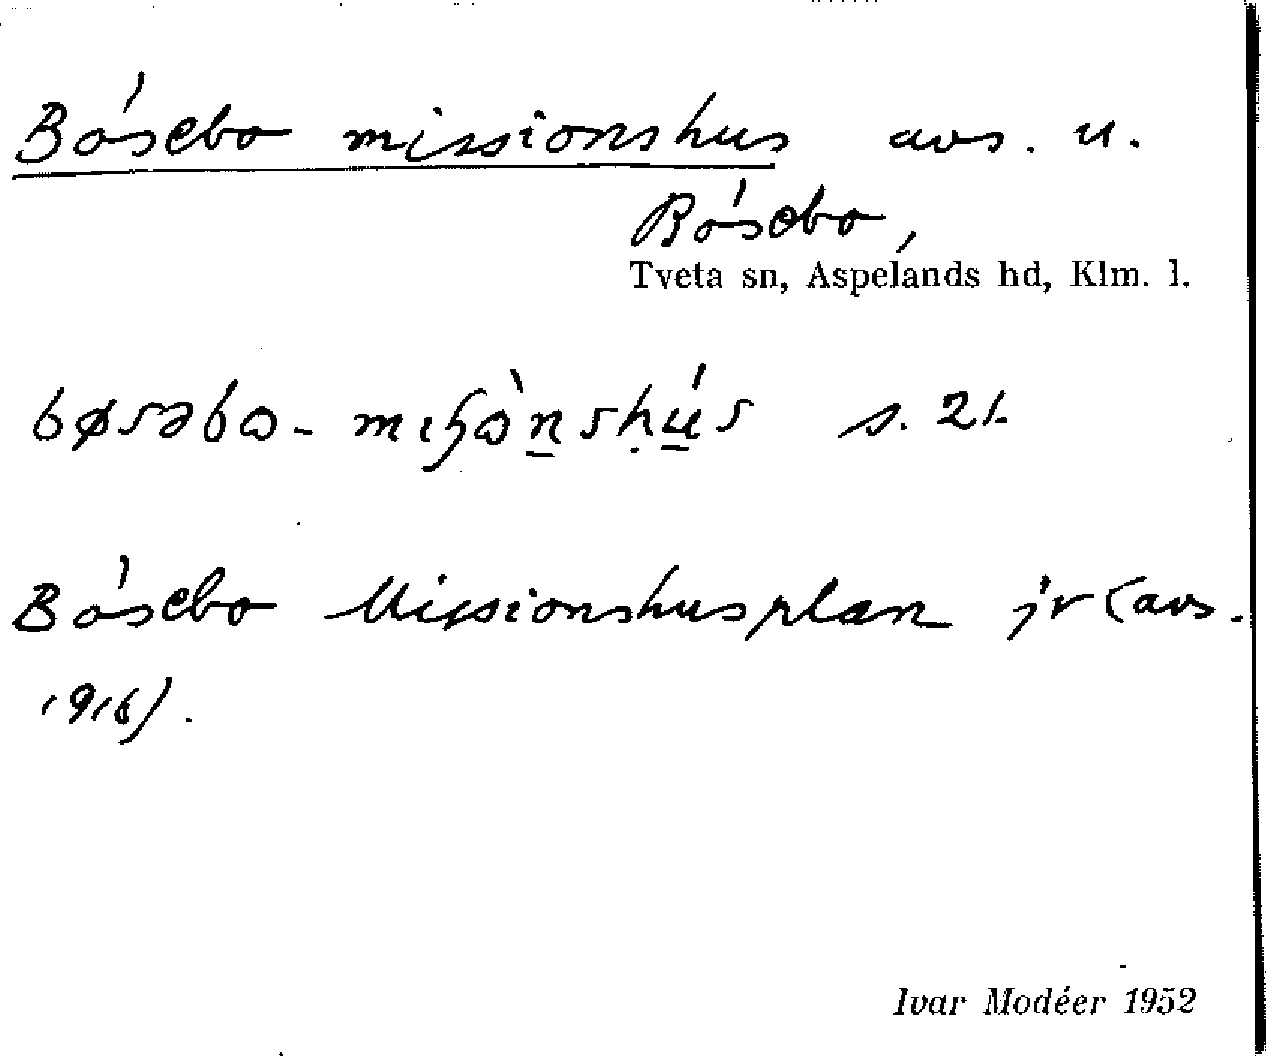 Bósebo missionshus avs. u.
Bósebo,
Tveta sn, Aspelands hd, Klm. l.
s. 21.
Bósebo Missionshusplan jr (avs.
1916).
Ivar Modéer 1952